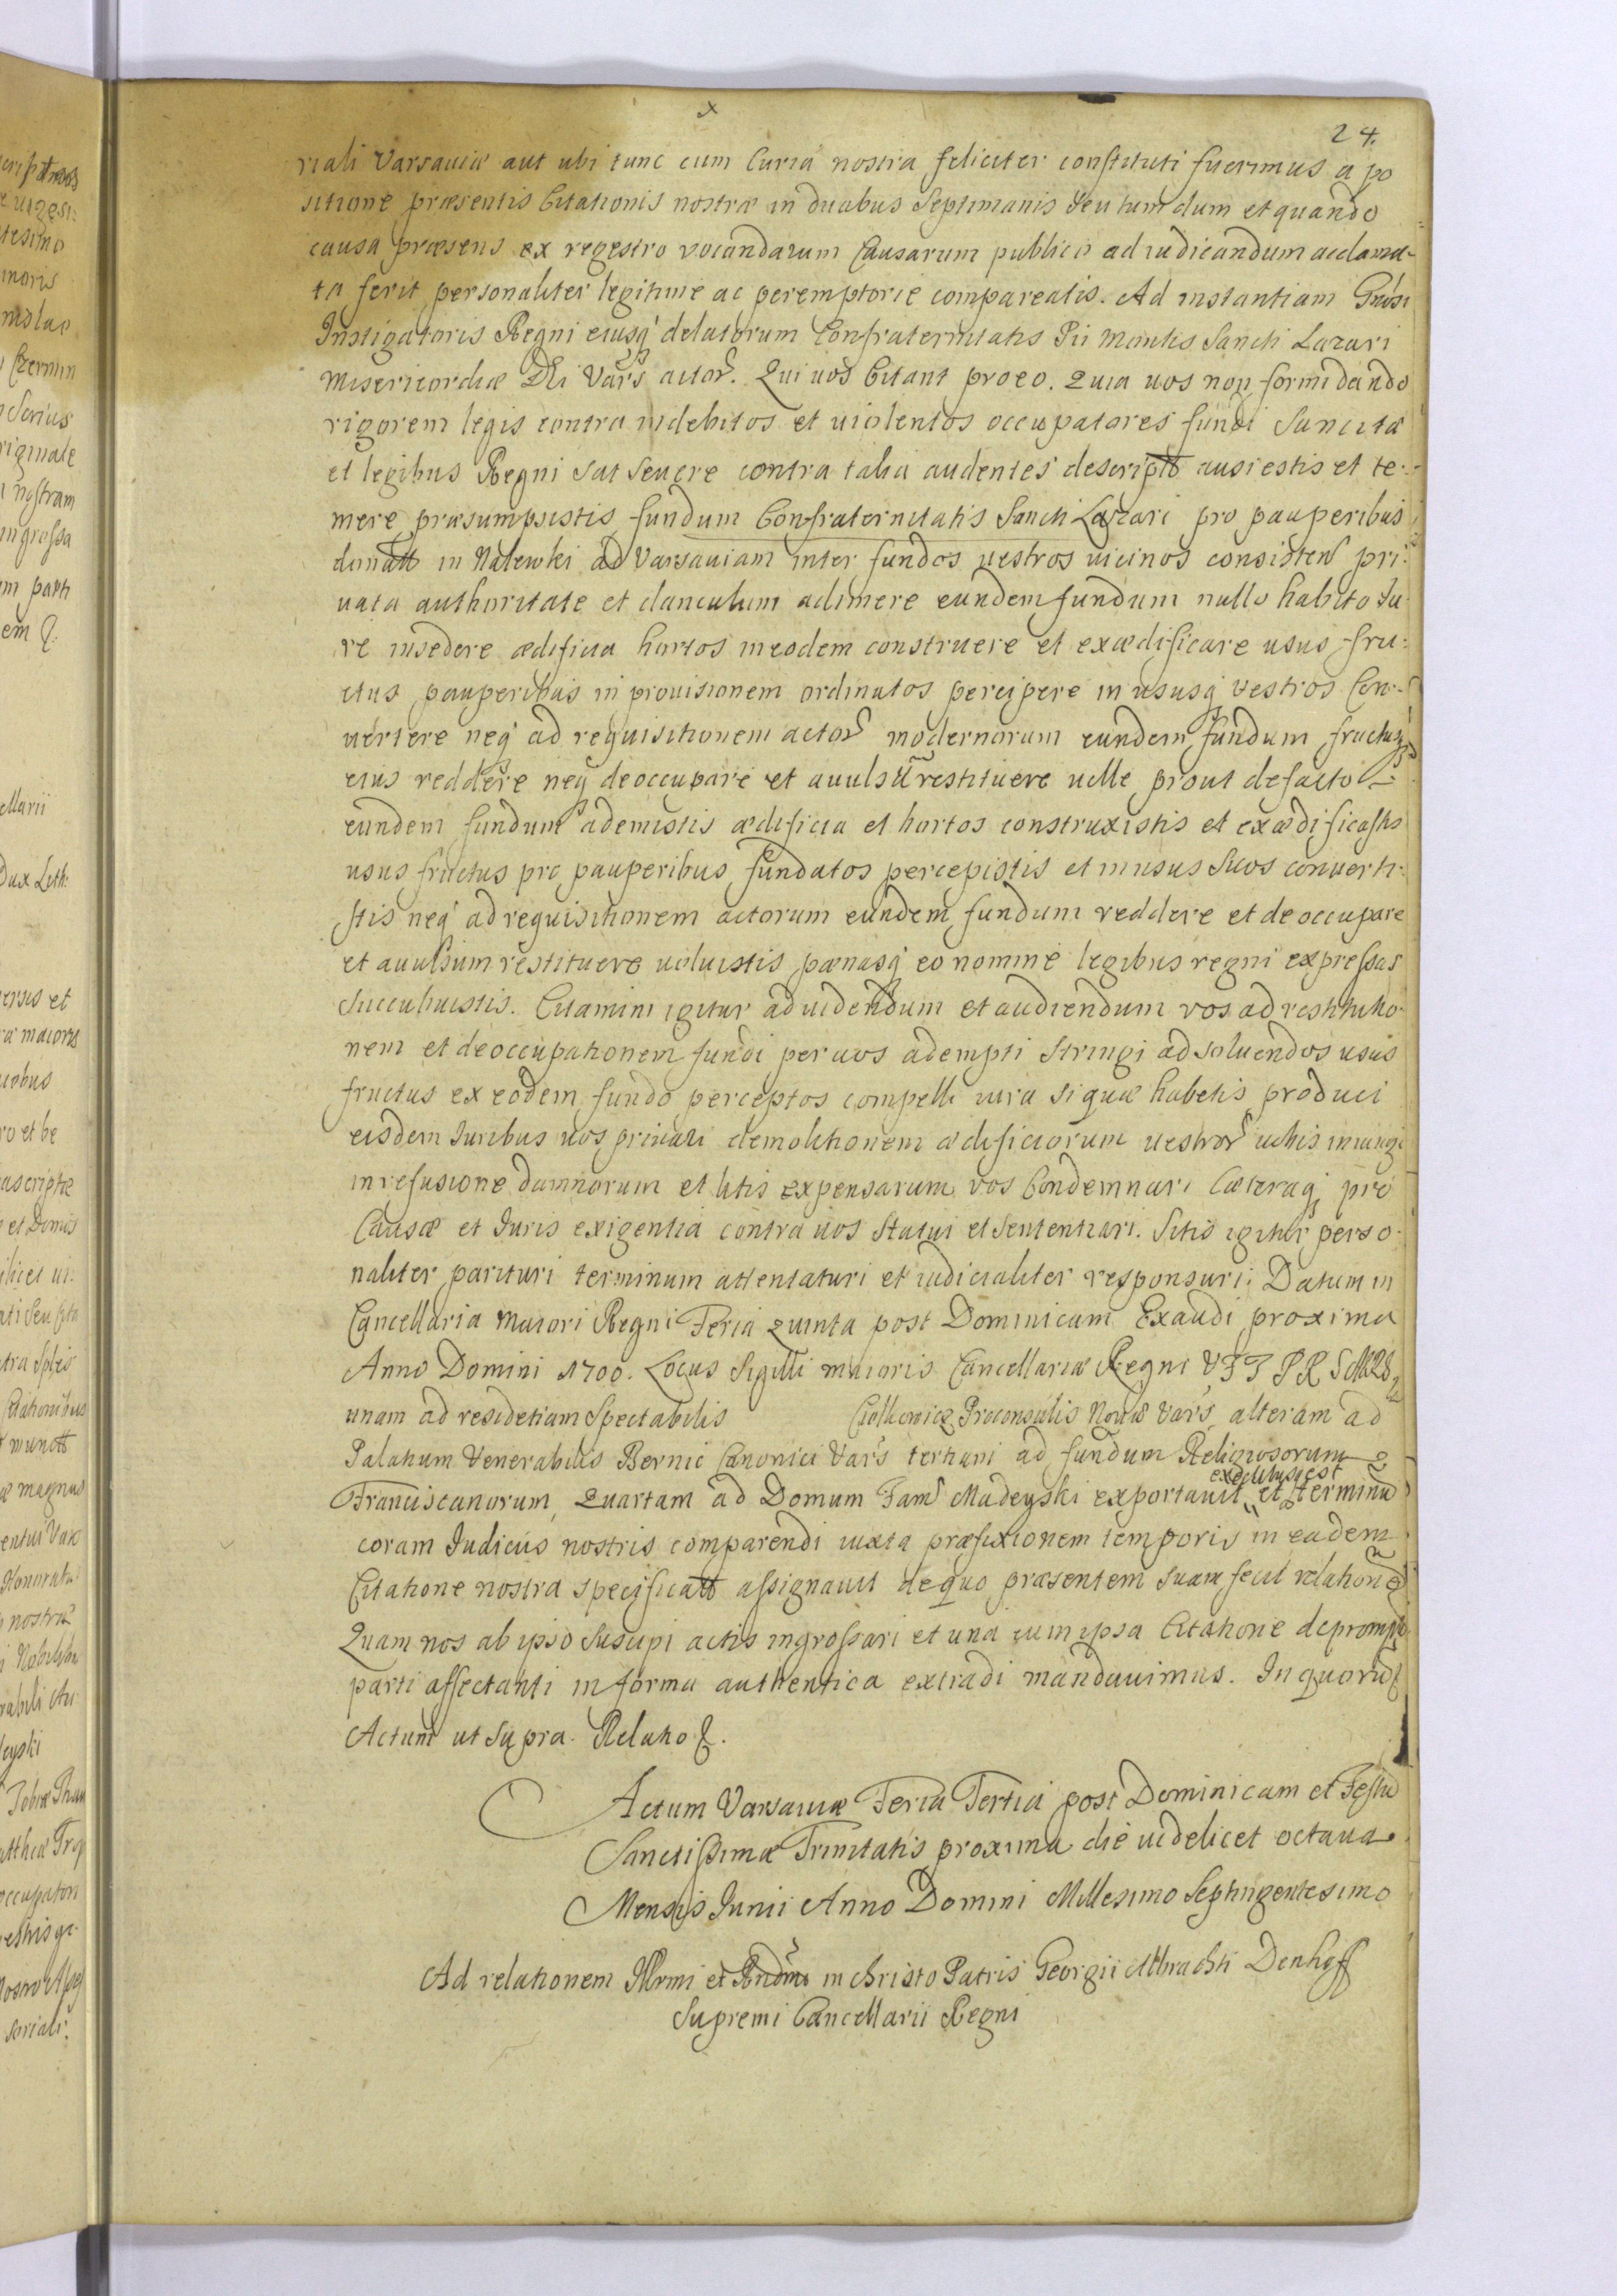 x
24.
riali Varsaviæ aut ubi tunc cum Curia nostra feliciter constituti fuerimus a po
sitione præsentis Citationis nostræ in duabus Septimanis seu tum dum et quando
causa præsens ex regestro vocandarum Causarum publico ad iudicandum acclama-
ta ferit personaliter legitime ac peremptorie compareatis. Ad instantiam Gnosi
Instigatoris Regni eiusq delatorum Confraternitatis Pii Montis Sancti Lazari
Misericordiæ Dei Vars actor. Qui vos Citant pro eo. Quia vos non formidando
rigorem legis contra indebitos et violentos occupatores fundi Sancita
et legibus Regni sat severe contra talia audentes descriptt ausi estis et te-
mere præsumpsistis fundum Confraternitatis Sancti Lazari pro pauperibus
donatt in Nalewki ad Varsaviam inter fundos vestros vicinos consisten pri-
vata authoritate et clanculum adimere eundem fundum nullo habito Iu
re insedere ædificia hortos in eodem construere et exædificare usus fru-
ctus pauperibus in provisionem ordinatos percipere in ususq vestros Con-
vertere neq ad requisitionem actor modernorum eundem fundum fructusq
eius reddere neq deoccupare et avulsu restituere velle prout defacto
eundem fundum ademistis ædificia et hortos construxistis et exædificastis
usus fructus pro pauperibus fundatos percepistis et in usus suos converti-
stis neq ad requisitionem actorum eundem fundum reddere et deoccupare
et avulsum restituere voluistis pænasq eo nomine legibus regni expressas
succubuistis. Citamini igitur ad videndum et audiendum vos ad restitutio-
nem et deoccupationem fundi per vos adempti stringi ad solvendos usus
fructus ex eodem fundo perceptos compelli iura si quæ habetis produci
eisdem Iuribus vos privari demolitionem ædificiorum vestror vobis iniungi
in refusione damnorum et litis expensarum vos Condemnari Cæteraq pro
Causæ et Iuris exigentia contra vos statui et sententiari. Sitis igitur perso-
naliter parituri terminum attentaturi et iudicialiter responsuri. Datum in
Cancellaria Maiori Regni Feria quinta post Dominicam Exaudi proxima
Anno Domini 1700. Locus Sigilli maioris Cancellariæ Regni
unam ad residetiam Spectabilis Proconsulis Novæ Vars alteram ad
Palatium Venerabilis Bernic Canonici Vars tertiam ad fundum Religiosorum
exdelibusiest
Franciscanorum, Quartam ad Domum Fam Madeyski exportavit et terminu
coram Iudicus nostris comparendi iuxta præfixionem temporis in eadem
Citatione nostra specificatt assignavit de quo præsentem suam fecit relatione
Quam nos ab ipso suscipi actis ingrossari et una cum ipsa Citatione deprompt
parti affectanti in forma authentica extradi mandavimus. In quoru
Actum ut supra. Relatio
Actum Varsaviæ Feria Tertia post Dominicam et Festu
Sanctissimæ Trinitatis proxima die videlicet octava
Mensis Iunii Anno Domini Millesimo Septingentesimo
Ad relationem Illrmi et Rndmi in christo Patris Georgii Albrachti Denhoff
Supremi Cancellarii Regni